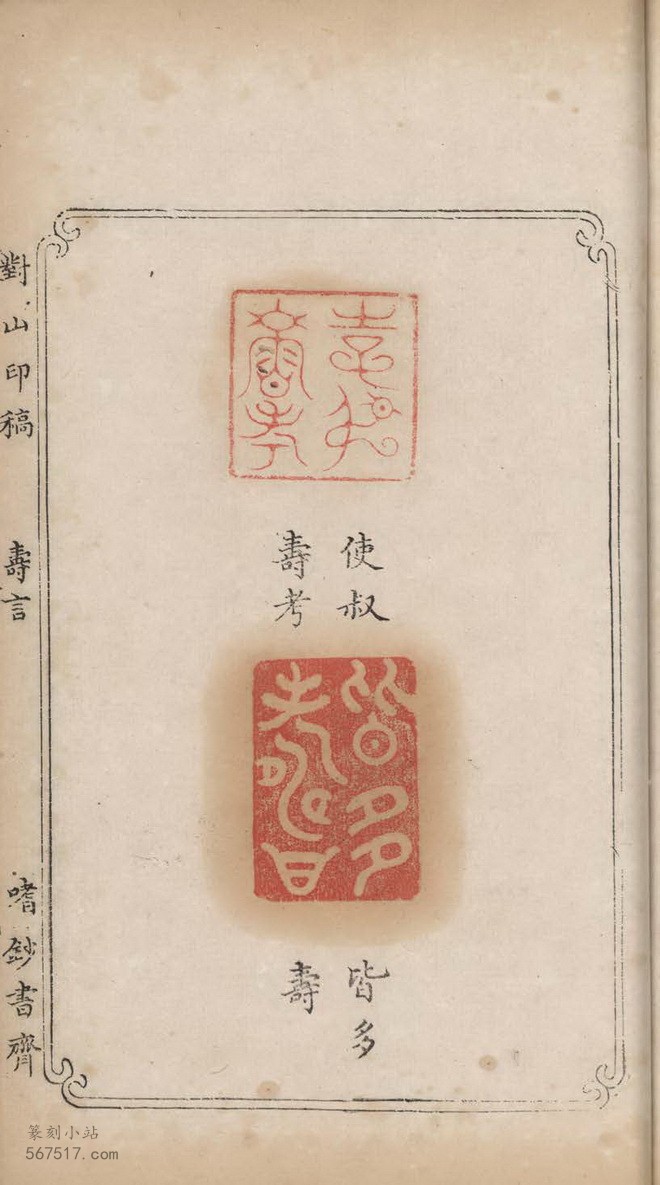 使叔
壽考
皆多
壽
對山印稿
壽言
嗜鈔書齊
篆刻小站
567517.com